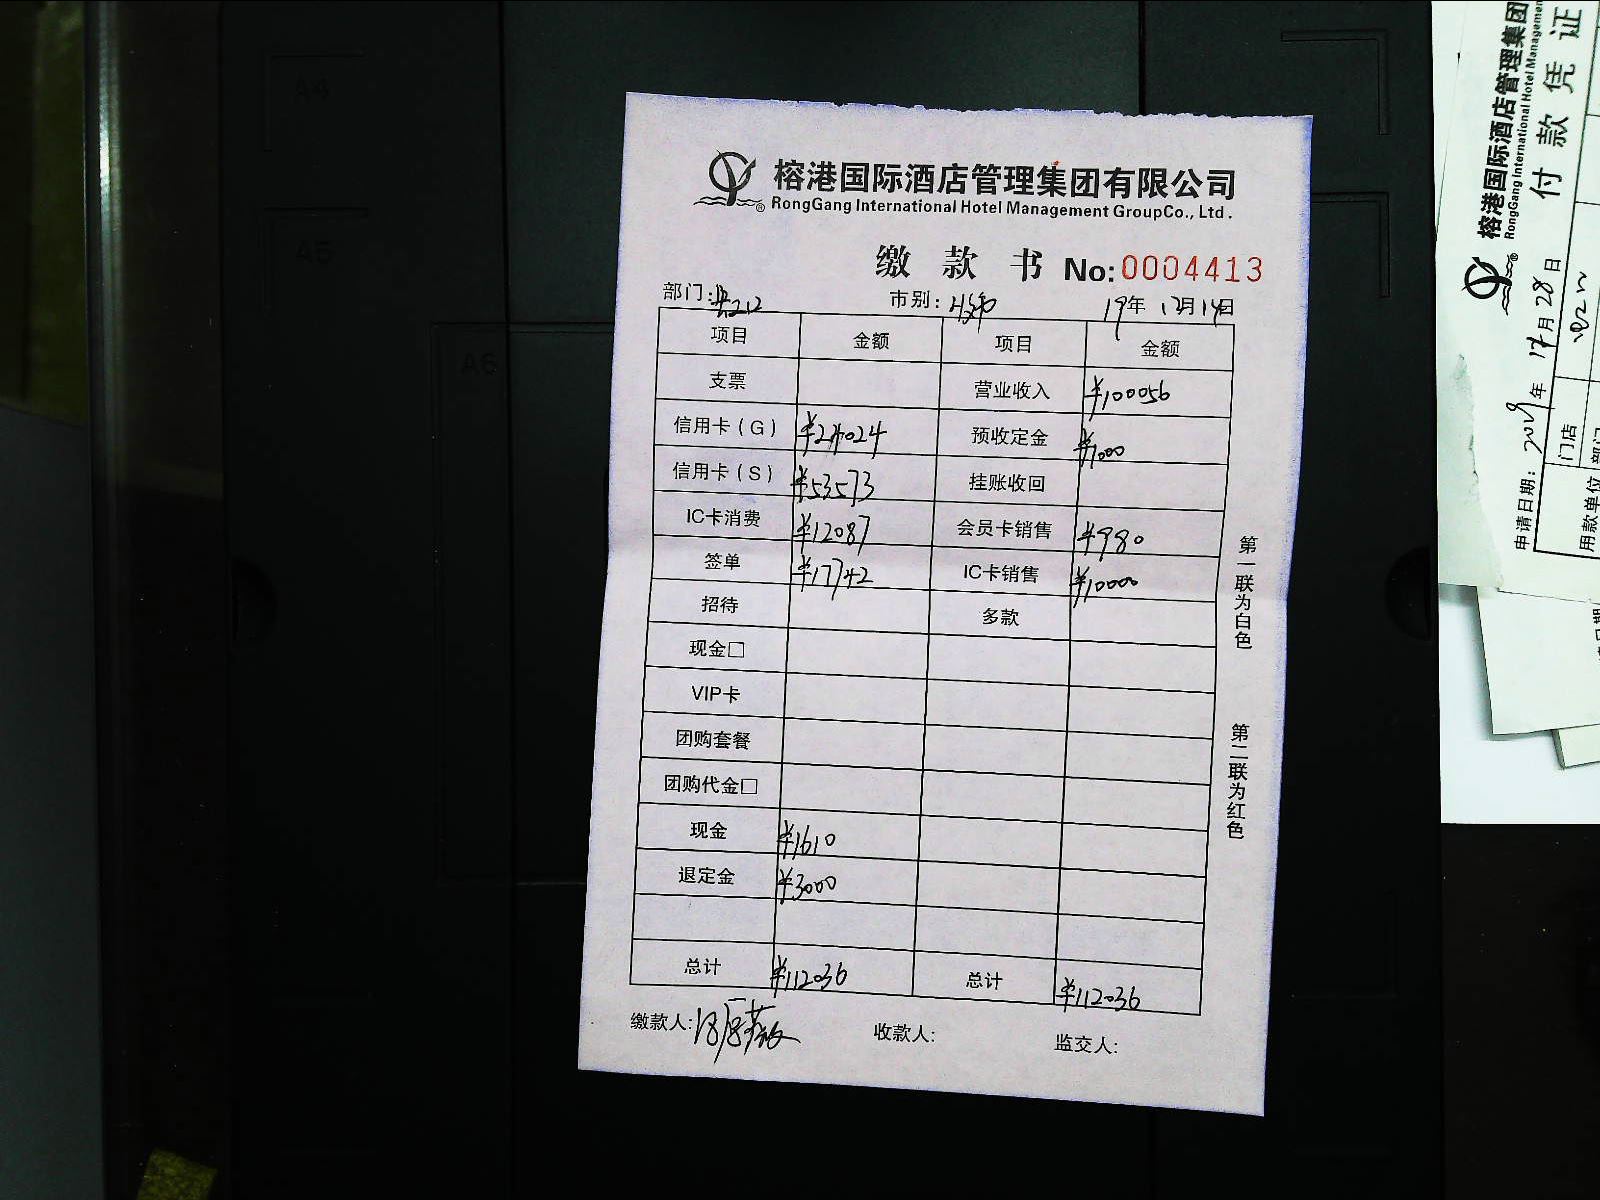 榕港国际酒店管理集团有限公司
RongGang International Hotel Management GroupCo., Ltd.
缴 款 书 No:0004413
部门: 市别: 19年 12月 14日
项目 金额 项目 金额
支票 营业收入 ¥100056
信用卡(G) ¥24024 预收定金 ¥1000
信用卡(S) ¥53573 挂账收回
IC卡消费 ¥12087 会员卡销售 ¥980
签单 ¥17742 IC卡销售 ¥10000
招待 多款
现金□
VIP卡
团购套餐
团购代金□
现金 ¥1610
退定金 ¥3000
总计 ¥112036 总计 ¥112036
缴款人: 收款人: 监交人:
第一联为白色
第二联为红色
榕港国际酒店管理集团
RongGang International Hotel Management
付 款 凭 证
申请日期: 2019年 12月28日
门店
用款单位
部门
A4
A5
A6